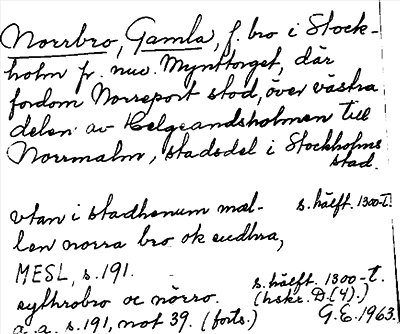 Norrbro, Gamla, f. bro i Stock-
holm fr. nuv. Mynttorget, där
fordom Norreport stod, över västra
delen av Helgeandsholmen till
Norrmalm, stadsdel i Stockholms
stad.
vtan i stadhenum mäl- s. hälft. 1300-t.
len norra bro ok sudhra,
MESL, s. 191.
sythrobro oc nörro. s. hälft. 1300-t.
(hskr. D (4).)
a. a. s. 191, not 39. (forts.) G.E. 1963.